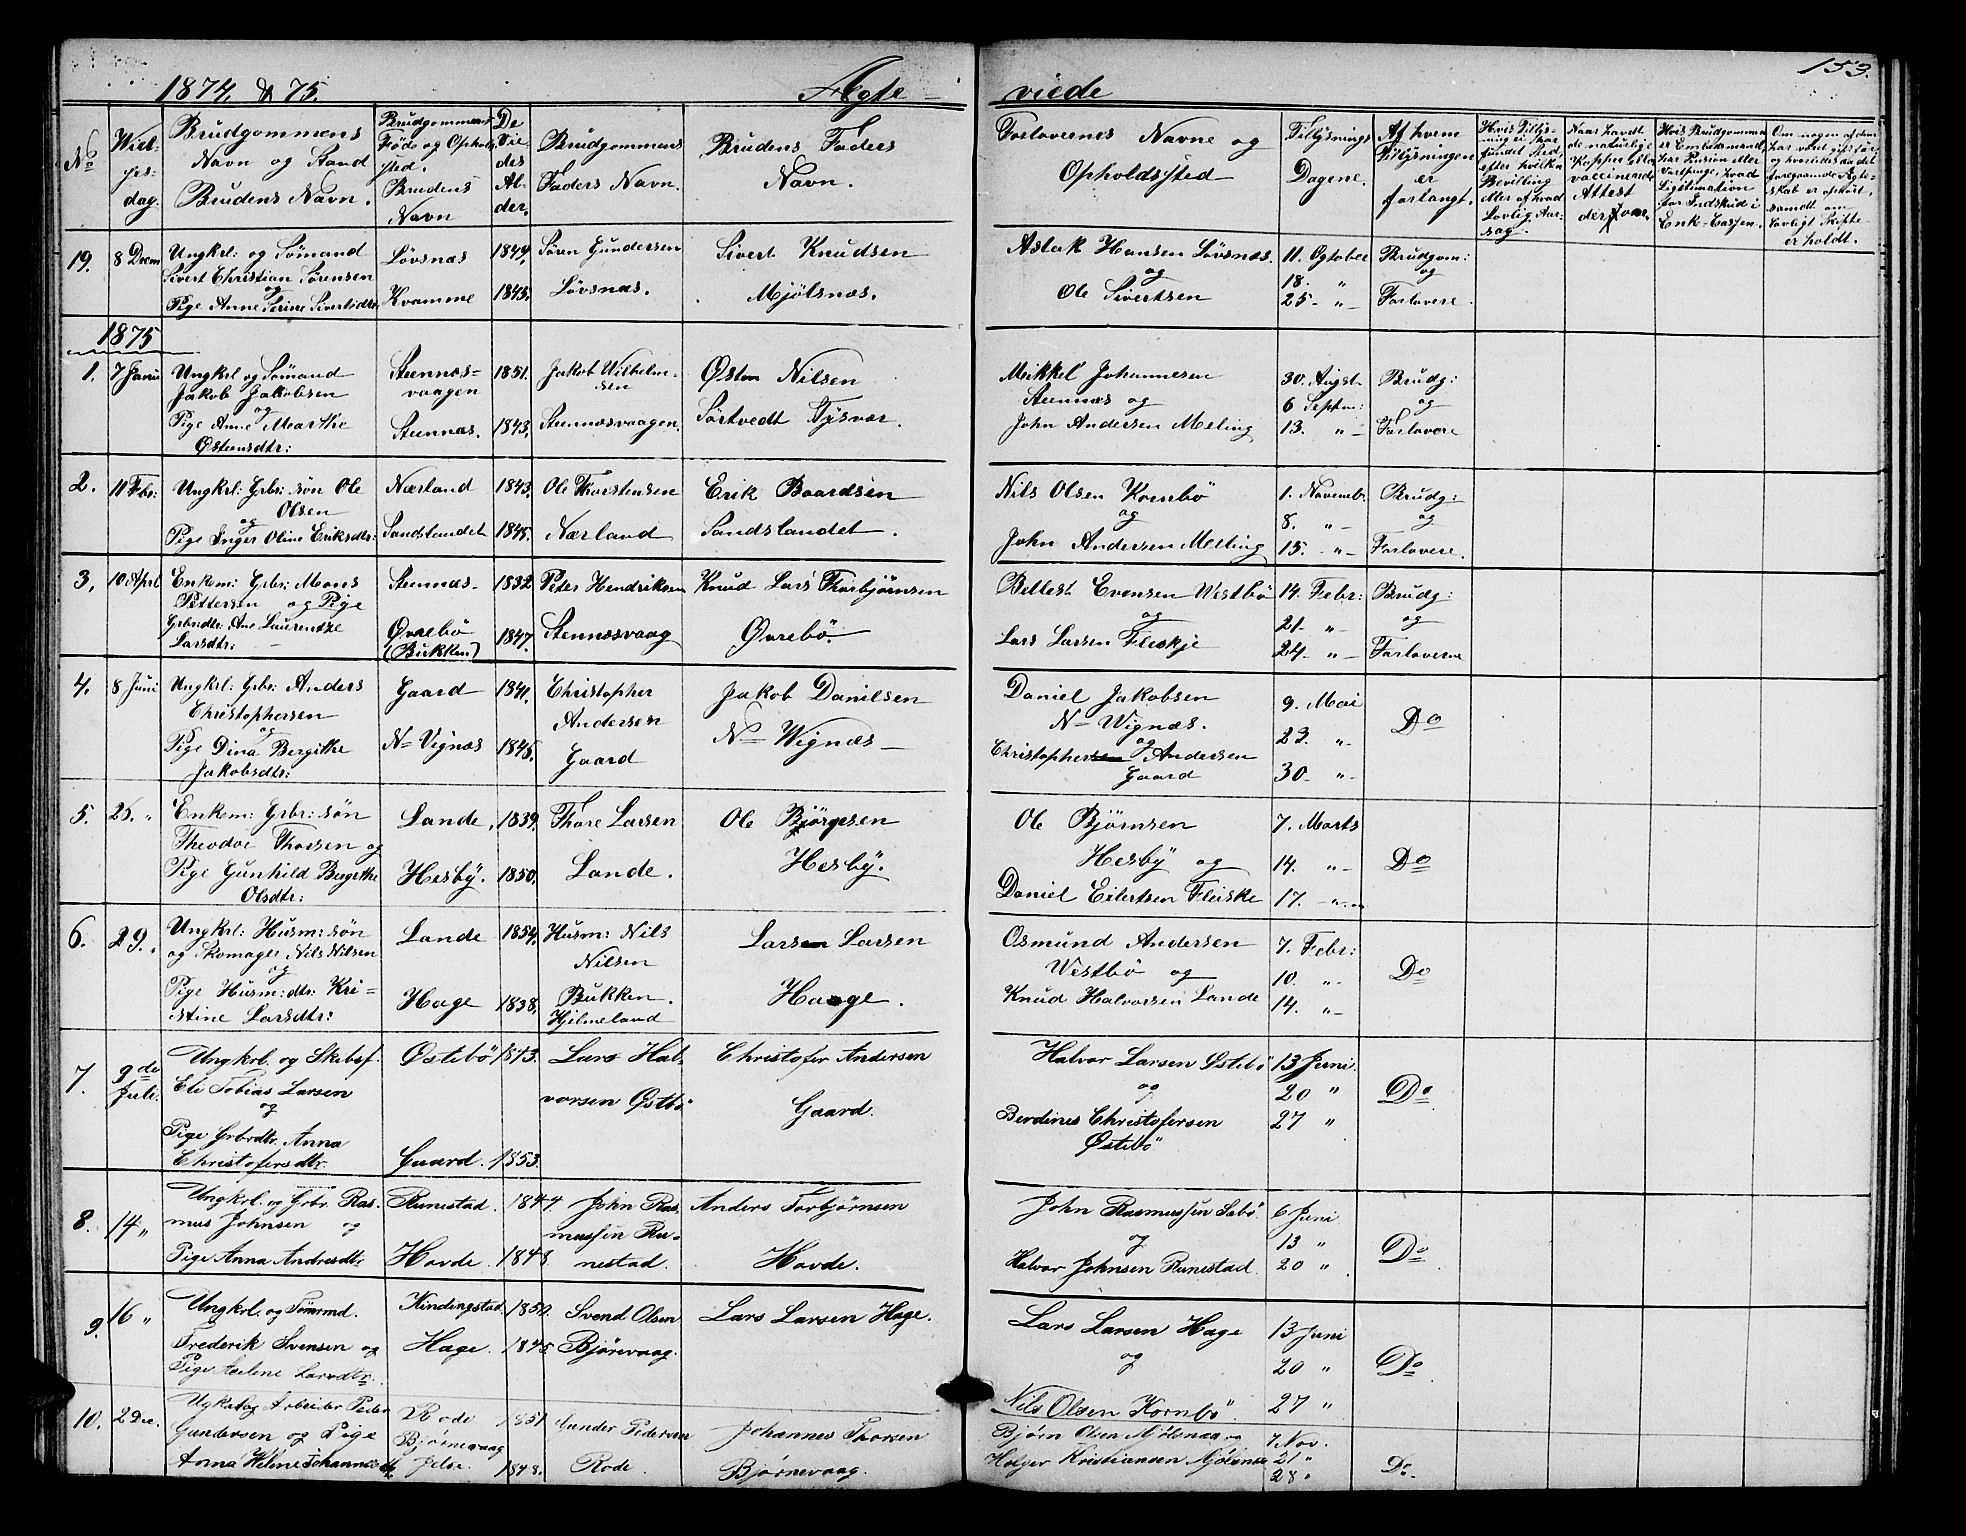 153.
1874, & 75. Ægte- viede
No
Viel-
ses-
dag.
Brudgommens
Navn og Stand
Brudens Navn.
Brudgommens
Føde og Ophold
sted.
Brudens
Navn
De
Vie
des
Al-
der.
Brudgommens
Faders Navn.
Brudens Faders
Navn.
Forlovernes Navne og
Opholdssted
Tillysnings
Dagene.
Af hvem
Tillysningen
er
forlangt.
Hvis Tillys-
ning ei har
fundet Sted,
efter hvilken
Bevilling
eller af hvad
Lovlig Aar-
sag.
Naar havdt
de naturlige
Kopper eller
vaccinerede
Attest
derfor.
Hvis Brudgommen
er Embedsmand,
har Pension eller
Vartpenge, hvad
Legitimation
for Indskud i
Enk-Cassen.
Om nogen af dem
har været gift før
og hvorledes da det
foregaaende Ægte-
skab er ophørt,
samdt om
Lovligt Skifte
er holdt.
19. 8 Decm
Ungkrl: og Sømand
Sivert Christian Sørensen
og
Pige Anne Serine Sivertsdtr
Løvsnæs
Kvamme
1844.
1843.
Søren Gundersen
Løvsnæs.
Sivert Knudsen
Mjølsnæs.
Aslak Hansen Løvsnæs
og
Ole Sivertsen
11. Ogtober
18. "
25- "-
Brudgom:
og
Forlovere.
1875
1. 7 Janu
Ungkrl og Sømand
Jakob Jakobsen
og
Pige Anne Marthe
Østensdtr:
Stennæs-
vaagen
Stennæs.
1851.
1843.
Jakob Wilhelm-
sen
Stennæsvaagen.
Østen Nilsen
Sørtvedt Tysvær.
Mikkel Johannesen
Stennæs og
John Andersen Melling
30. August
6 Septm:
13. "-
Brudg:
og
Forlovere
2. 11 Fbr:
Ungkrl: Grbr: søn Ole
Olsen
og
Pige Inger Oline Eriksdtr:
Nærland
Sandslandet
1843.
1845.
Ole Thorstensen
Nærland
Erik Baardsen
Sandslandet.
Nils Olsen Kornbø
og
John Andersen Melling
1. Novemb.
8. "-
15. -"-
Brudg:
og
Forlovere.
3, 10 Aprl
Enkem: Grbr: Mons
Pettersen og Pige
Grbrdtr: Ane Laurentze
Larsdtr:
Stennæs-
Øvrebø
(Bukken)
1832
1847.
Peter Hendriksen
Stennæsvaag
Knud Lars Thorbjørnsen
Øvrebø.
Bellest Evensen Westbø
og
Lars Larsen Fleskje
14. Febr:
21- "-
24- "-
Brudg:
og
Forloverne
4. 8 Juni
Ungkrl: Grbr: Anders
Christophersen
og
Pige Dina Bergithe
Jakobsdtr:
Gaard
N- Vignæs
1841.
1845.
Christopher
Andersen
Gaard
Jakob Danilsen
N- Wignæs-
Daniel Jakobsen
N- Wignæs.
og
Christophersen Andersen
Gaard
9. Mai
23. "-
30- "-
Do
5. 25. "
Enkem: Grbr: søn
Theodor Thorsen og
Pige Gunhild Bergithe
Olsdtr:
Lande,
Hesby.
1839.
1850.
Thore Larsen
Lande.
Ole Bjørgesen
Hesby.
Ole Bjørnsen
Hesby og
Daniel Eilertsen Fleiske
7. Marts
14. "-
17. -"-
Do
6. 29. "
Ungkrl: Husm: søn
og Skomager Nils Nilsen
og
Pige Husm: dtr: Kri-
stine Larsdtr:
Lande
Hage
1854.
1838.
Husm: Nils
Nilsen
Bukken.
Hjelmeland
Larsen Larsen
Haage.
Osmund Andersen
Westbø og
Knud Halvorsen Lande
7. Febr:
10. "-
14. "-
Do
7. 9de
Juli.
Ungkrl. og Skibsf.
Eli Tobias Larsen
og
Pige Grbrdtr. Anna
Christofersdtr.
Østebø
Gaard.
1843.
1853.
Lars Hal-
vorsen Østbø
Christofer Andersen
Gaard.
Halvor Larsen Østebø
og
Berdines Christofersen
Østebø
13 Juni.
20 "
27 "
Do
8. 14 "
Ungkrl. og Grbr. Ras-
mus Johnsen og
Pige Anna Andersdtr.
Runestad.
Hovde.
1844
1848
John Ras-
mussen Ru-
nestad.
Anders Torbjørnsen
Hovde.
John Rasmussen Sebø
og
Halvor Johnsen Runestad.
6 Juni
13 "
20 "
Do
9. 16 "
Ungkrl. og Tømmd.
Frederik Svensen og
Pige Helene Larsdtr.
Kindingstad
Hage.
1850.
1845
Svend Olsen
Bjørevaag.
Lars Larsen Hage.
Lars Larsen Hage
og
Nils Olsen Kornbø.
13 Juni
20 "
27 "
Do
10. 2 Dec.
Ugkrl og Arbeider Peder
Gundersen og Pige
Anna Helene Johannesdtr.
Rode
Bjørnevaag
Jelse.
1851
1848.
Gunder Pedersen
Rode.
Johannes Thorsen
Bjørnevaag.
Bjørn Olsen Mjølsnæs og
Holger Kristiansen Mjølsnæs
7 Nov.
21 "
28 "
Do.